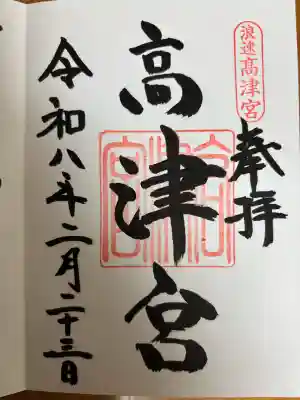 浪速高津宮
奉拝
高津宮
令和八年二月二十三日